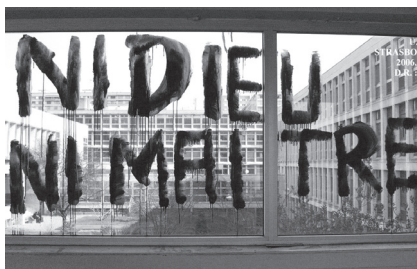 NI DIEU
NI MAITRE
STRASBO
2006.
D.R.